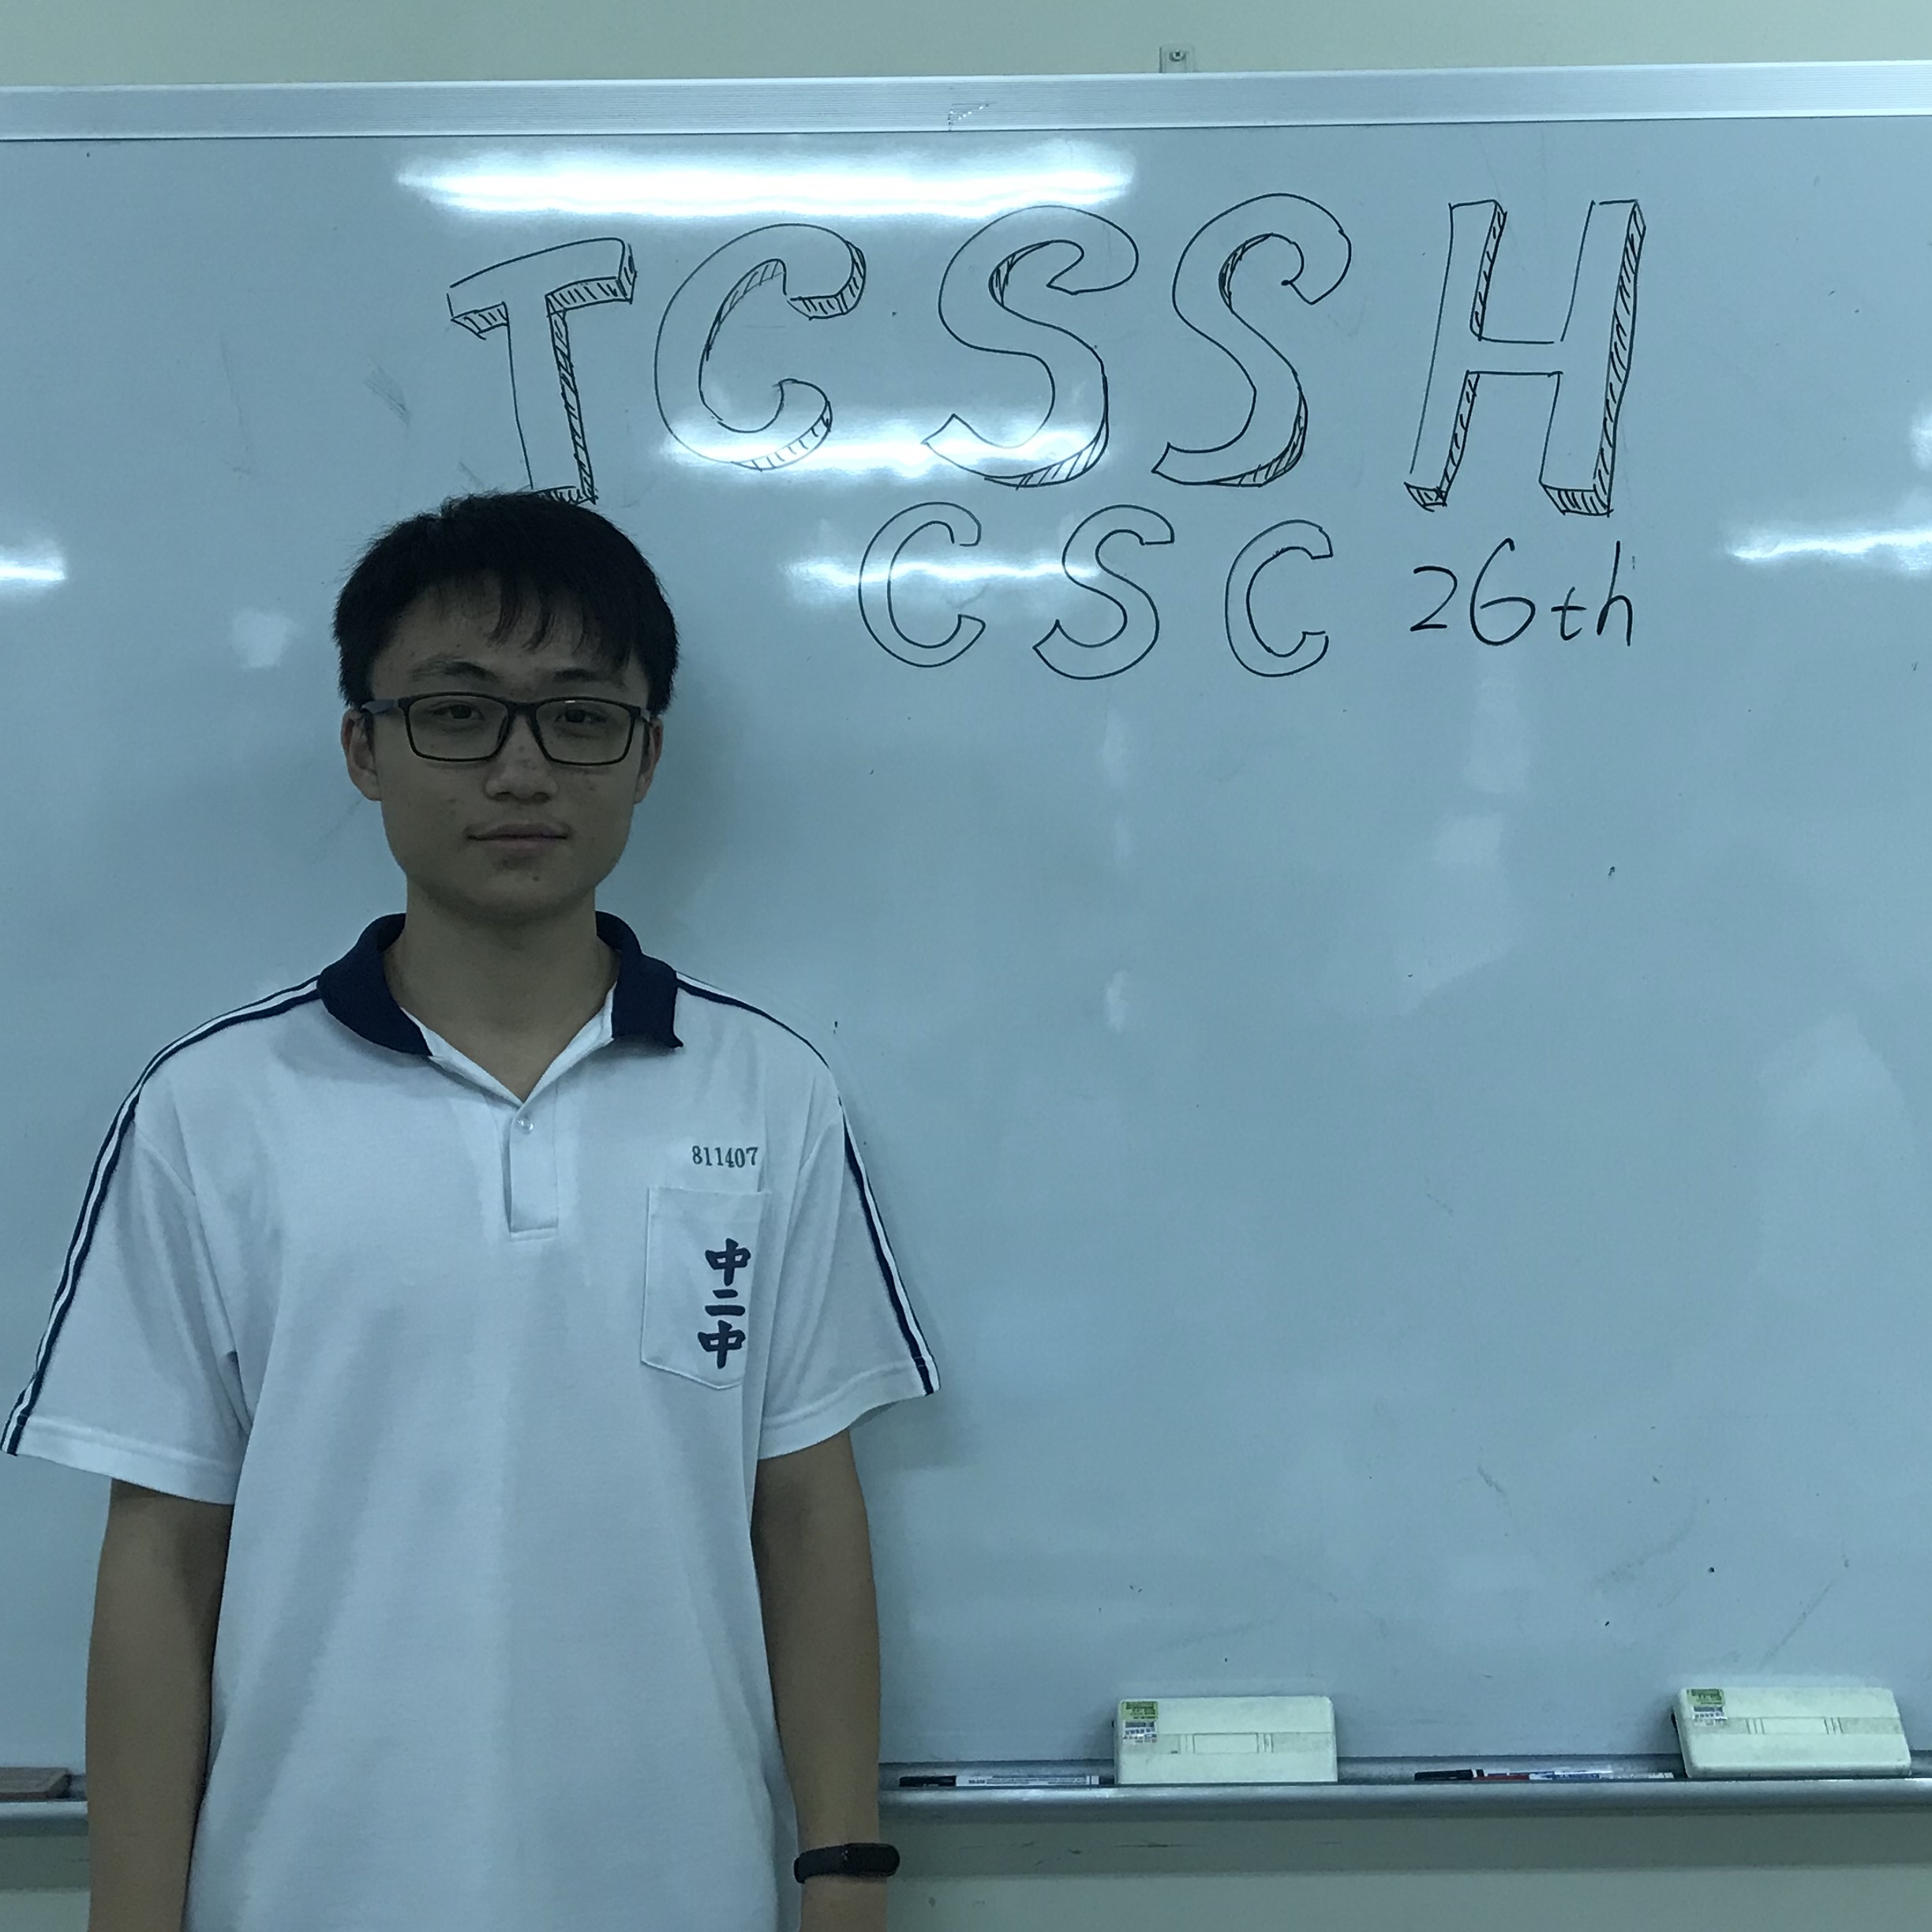 TCSSH
CSC 26th
811407
中二中